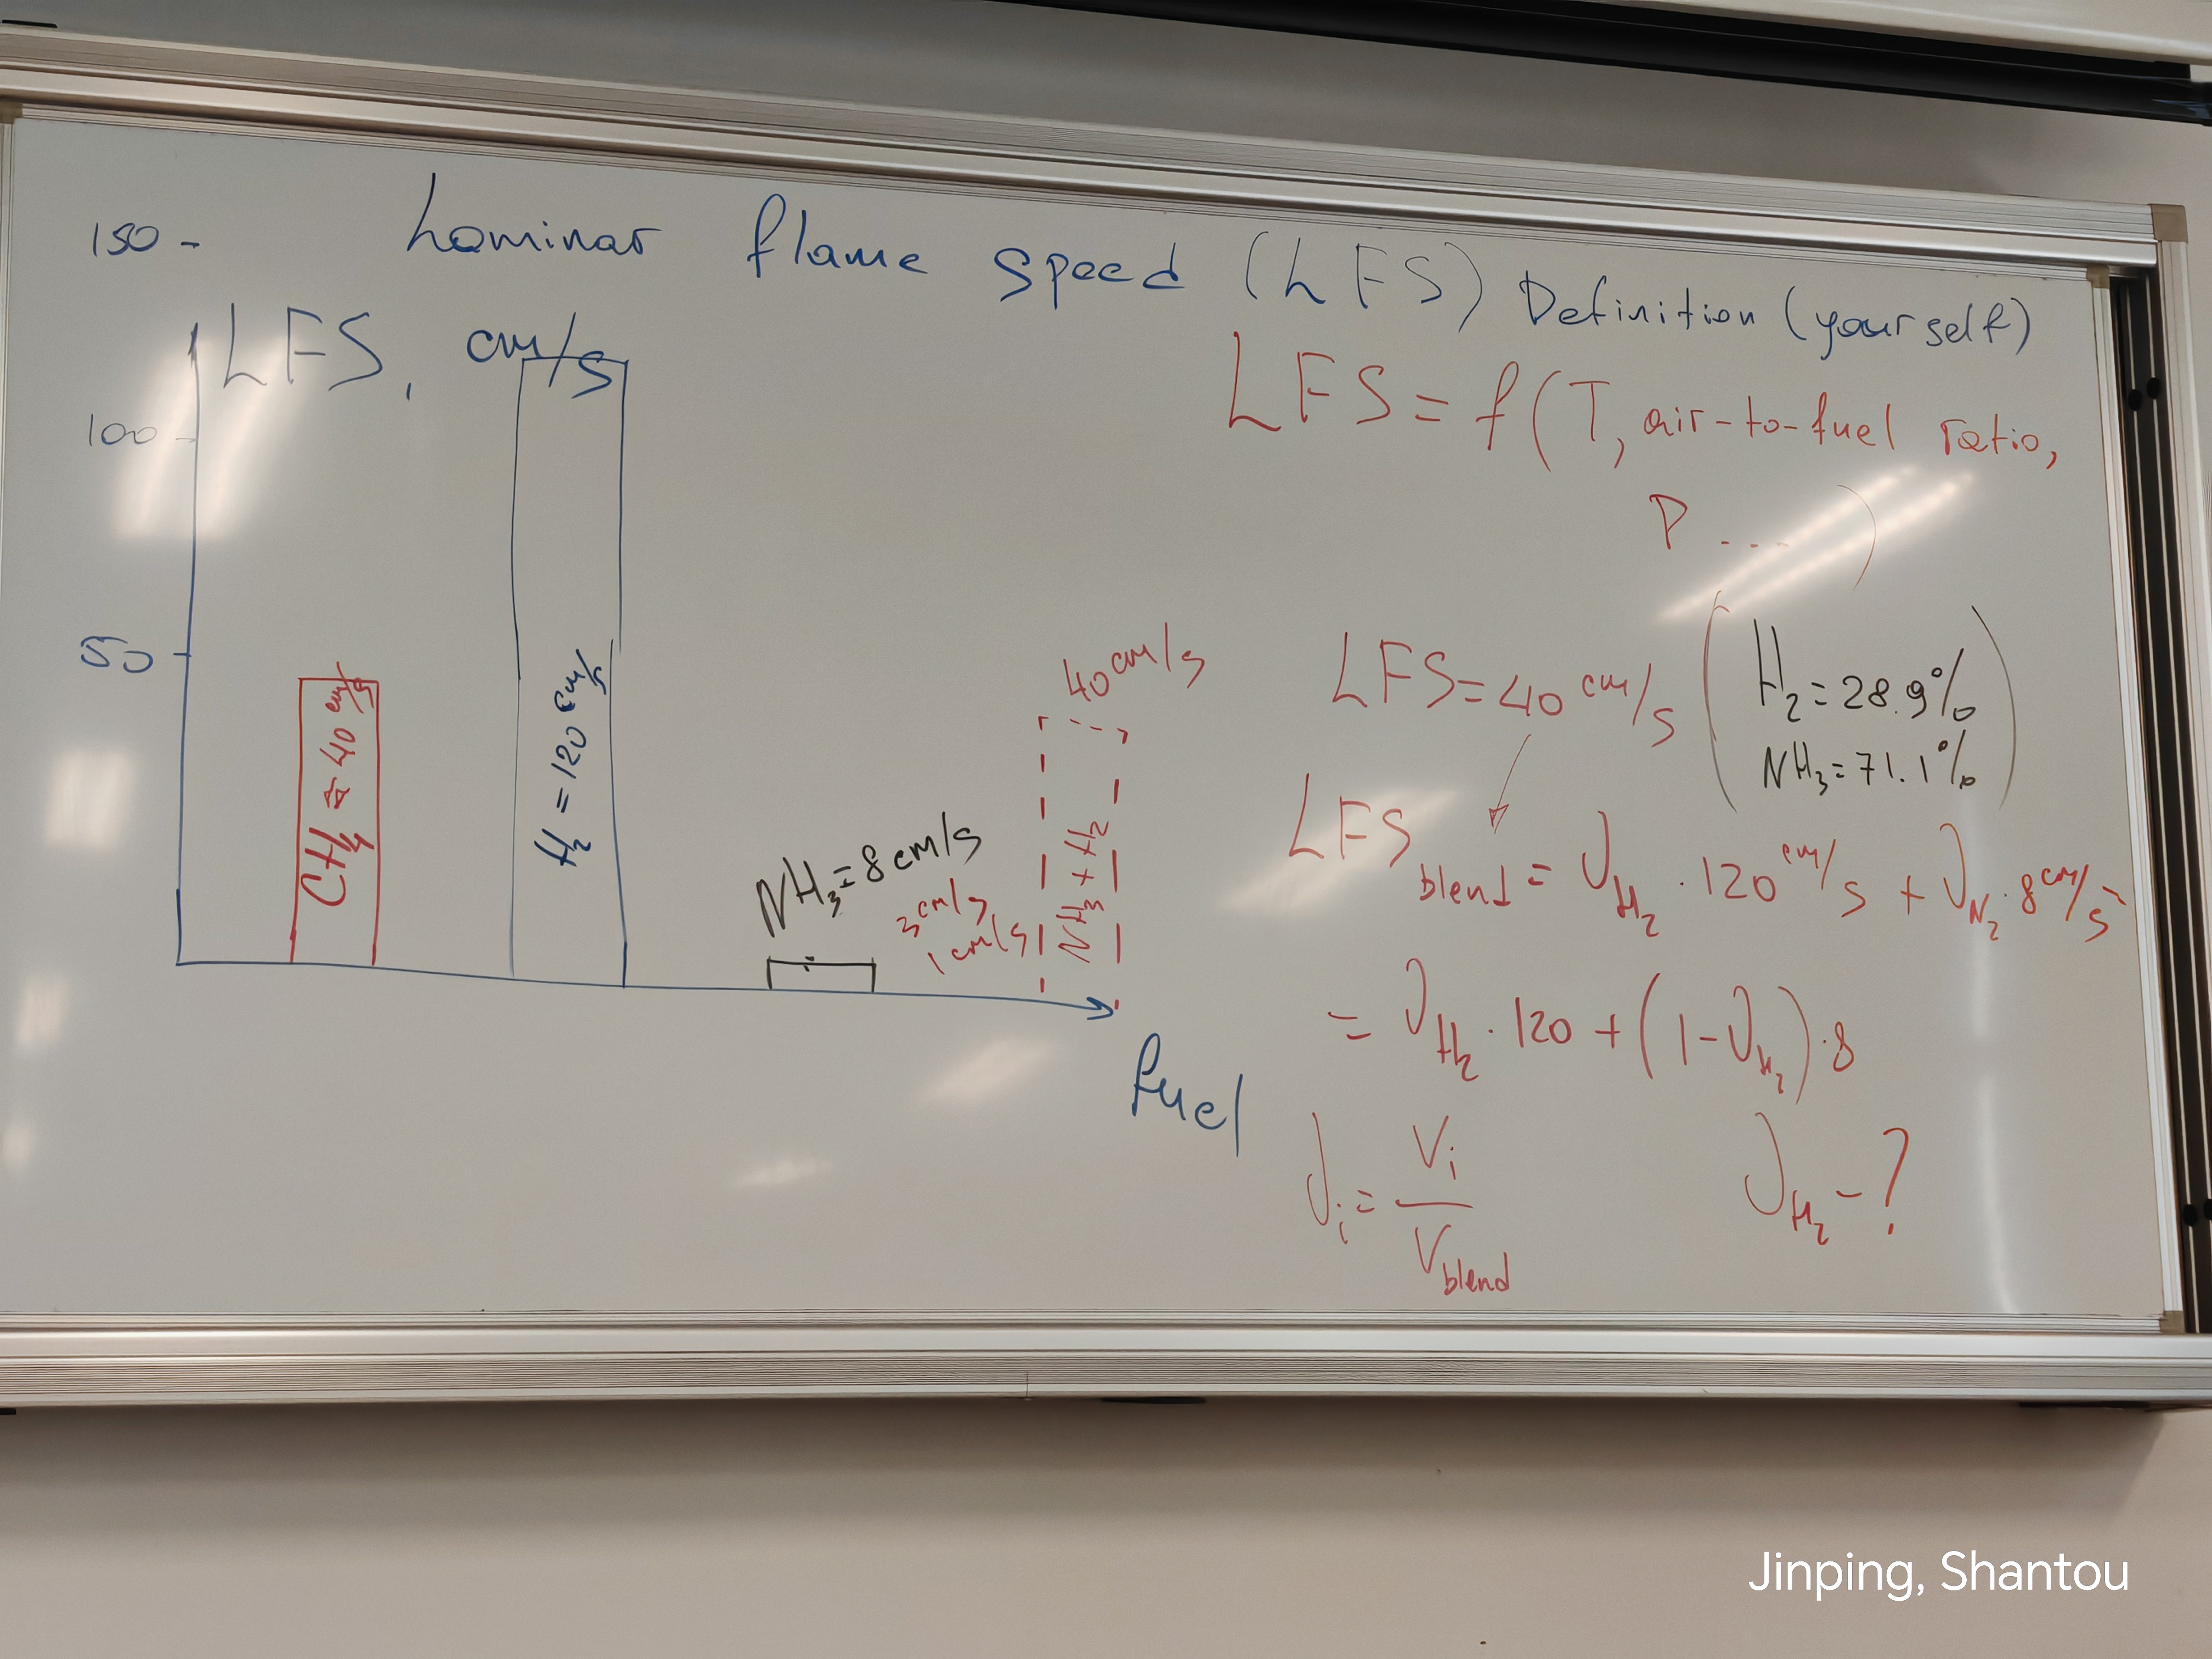 Laminar flame speed (LFS) Definition (yourself)
150 -
LFS, cm/s
100 -
50 -
CH₄ = 40 cm/s
H₂ = 120 cm/s
NH₃ = 8 cm/s
3 cm/s
1 cm/s
40 cm/s
NH₃ + H₂
fuel
LFS = f (T, air-to-fuel ratio,
P ... )
LFS = 40 cm/s ( H₂ = 28.9%
NH₃ = 71.1% )
LFS blend = ϑH₂ · 120 cm/s + ϑN₂ · 8 cm/s
= ϑH₂ · 120 + (1 - ϑH₂) · 8
ϑi = Vi / Vblend
ϑH₂ - ?
Jinping, Shantou